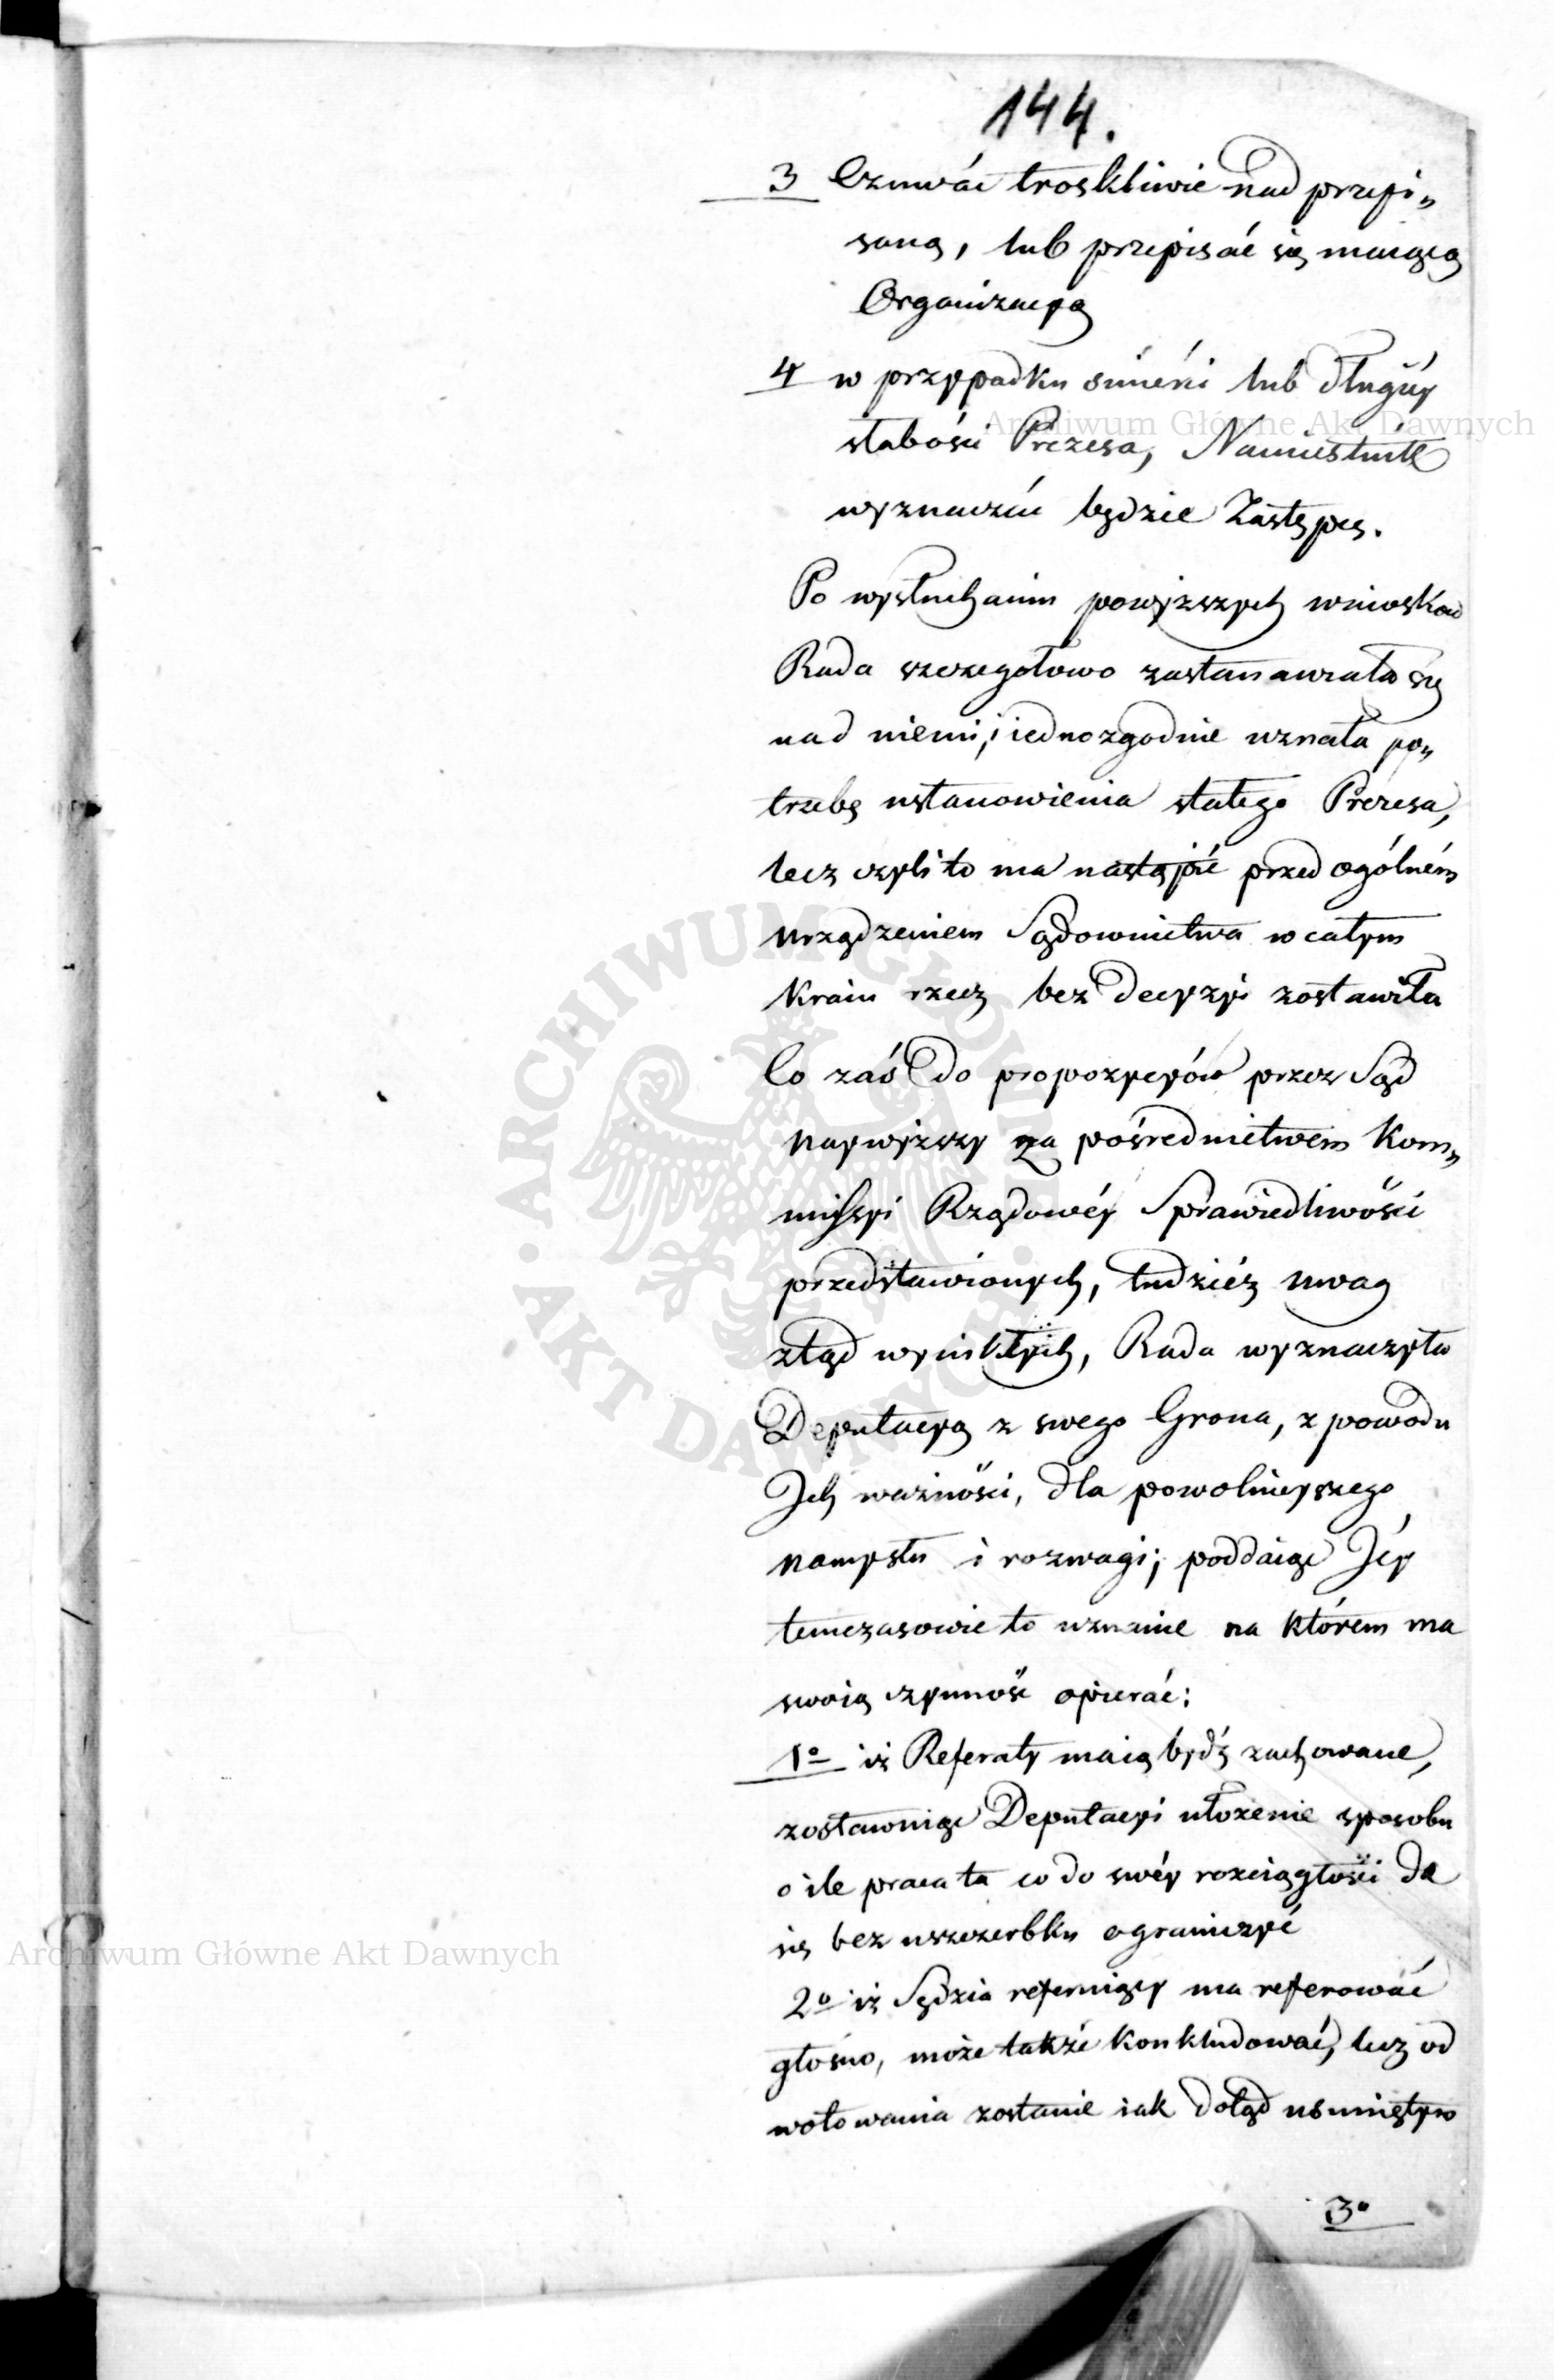 144.
3 Czuwać troskliwie nad przepi„
saną, lub przepisać się maiącą
Organizacyą
4 w przypadku śmierci lub długiéy
słabości Prezesa, Namiestnik
wyznaczać będzie Zastępcę.
Po wysłuchaniu powyższych wniosków
Rada szczegołowo zastanawiała się
nad niemi, i iednozgodnie uznała po„
trzebę ustanowienia stałego Prezesa,
lecz czyli to ma nastąpić przed ogólném
urządzeniem Sądownictwa w całym
Kraiu rzecz bez decyzyi zostawiła
Co zaś do propozycyów przez Sąd
Naywyższy za pośrednictwem Kom„
missyi Rządowéy Sprawiedliwości
przedstawionych, tudzież uwag
ztąd wynikłych, Rada wyznaczyła
Deputacyą z swego Grona, z powodu
Ich ważności, dla powolnieyszego
namysłu i rozwagi; poddaiąc Jéy
temczasowie to uznanie na którem ma
swoią czynność opierać:
1º iż Referaty maią bydź zachowane,
zostawuiąc Deputacyi ułożenie sposobu
o ile praca ta co do swéy rozciągłości da
się bez uszczerbku ograniczyć
2º iż Sędzia referuiący ma referować
głośno, może także konkludować, lecz od
wotowania zostanie iak dotąd usuniętym
3º
Archiwum Główne Akt Dawnych
Archiwum Główne Akt Dawnych
ARCHIWUM GŁÓWNE AKT DAWNYCH